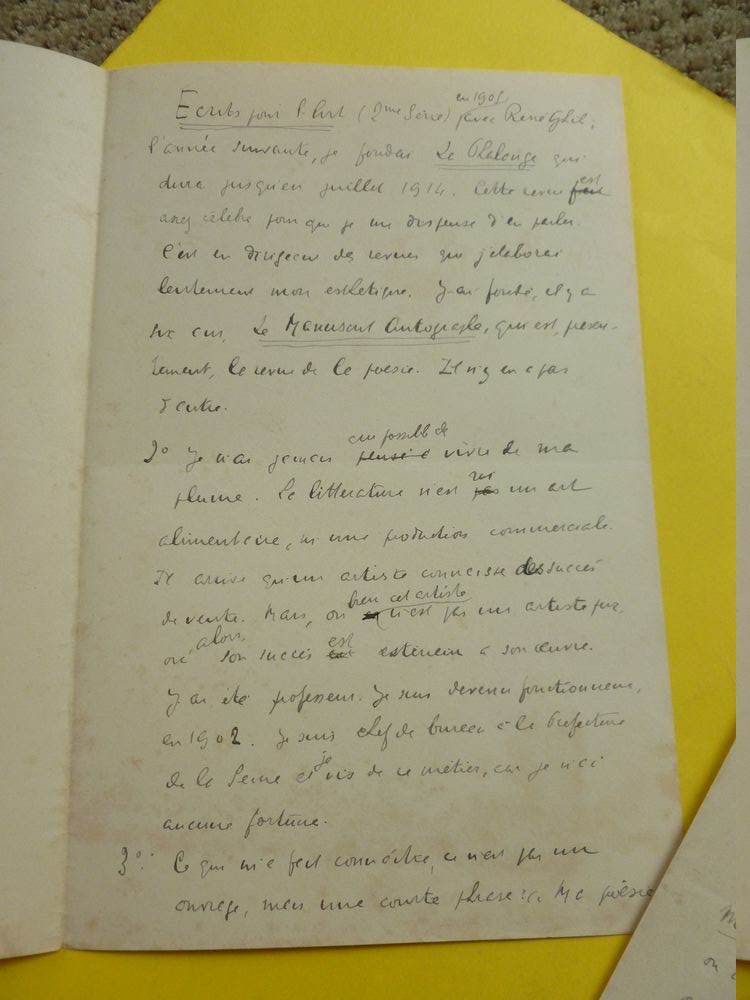 en 1905
Ecrits pour l'Art (2me Série) avec René Ghil ;
l'année suivante, je fondai La Phalange qui
dura jusqu'en juillet 1914. Cette revue est
assez célèbre pour que je me dispense d'en parler.
C'est en dirigeant des revues que j'élaborai
lentement mon esthétique. J'ai fondé, il y a
six ans, Le Manuscrit Autographe, qui est, présen-
tement, la revue de la poésie. Il n'y en a pas
d'autre.
cru possible de
2° Je n'ai jamais pensé à vivre de ma
plume. La littérature n'est pas un art
alimentaire, ni une production commerciale.
Il arrive qu'un artiste connaisse des succès
bien cet artiste
de vente. Mais, ou n'est pas un artiste pur,
alors est
ou son succès est extérieur à son œuvre.
J'ai été professeur. Je suis devenu fonctionnaire,
en 1902. Je suis chef de bureau à la Préfecture
je
de la Seine et vis de ce métier, car je n'ai
aucune fortune.
3° Ce qui m'a fait connaître, ce n'est pas un
ouvrage, mais une courte phrase : « Ma poésie